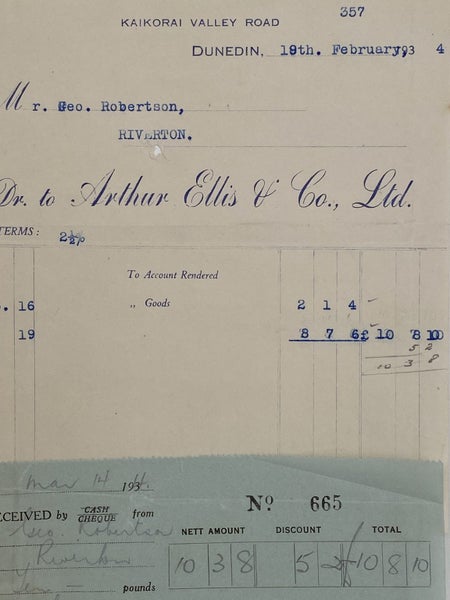 357
KAIKORAI VALLEY ROAD
DUNEDIN, 19th. February, 193 4
Mr. Geo. Robertson,
RIVERTON.
Dr. to Arthur Ellis & Co., Ltd.
TERMS: 2½%
To Account Rendered
. 16 „ Goods 2 1 4
19 8 7 6 £ 10 8 10
5 2
10 3 8
Mar 14 1934
No 665
ECEIVED by CASH CHEQUE from
Geo. Robertson
NETT AMOUNT DISCOUNT TOTAL
Riverton
10 3 8 5 2 10 8 10
Ten — pounds